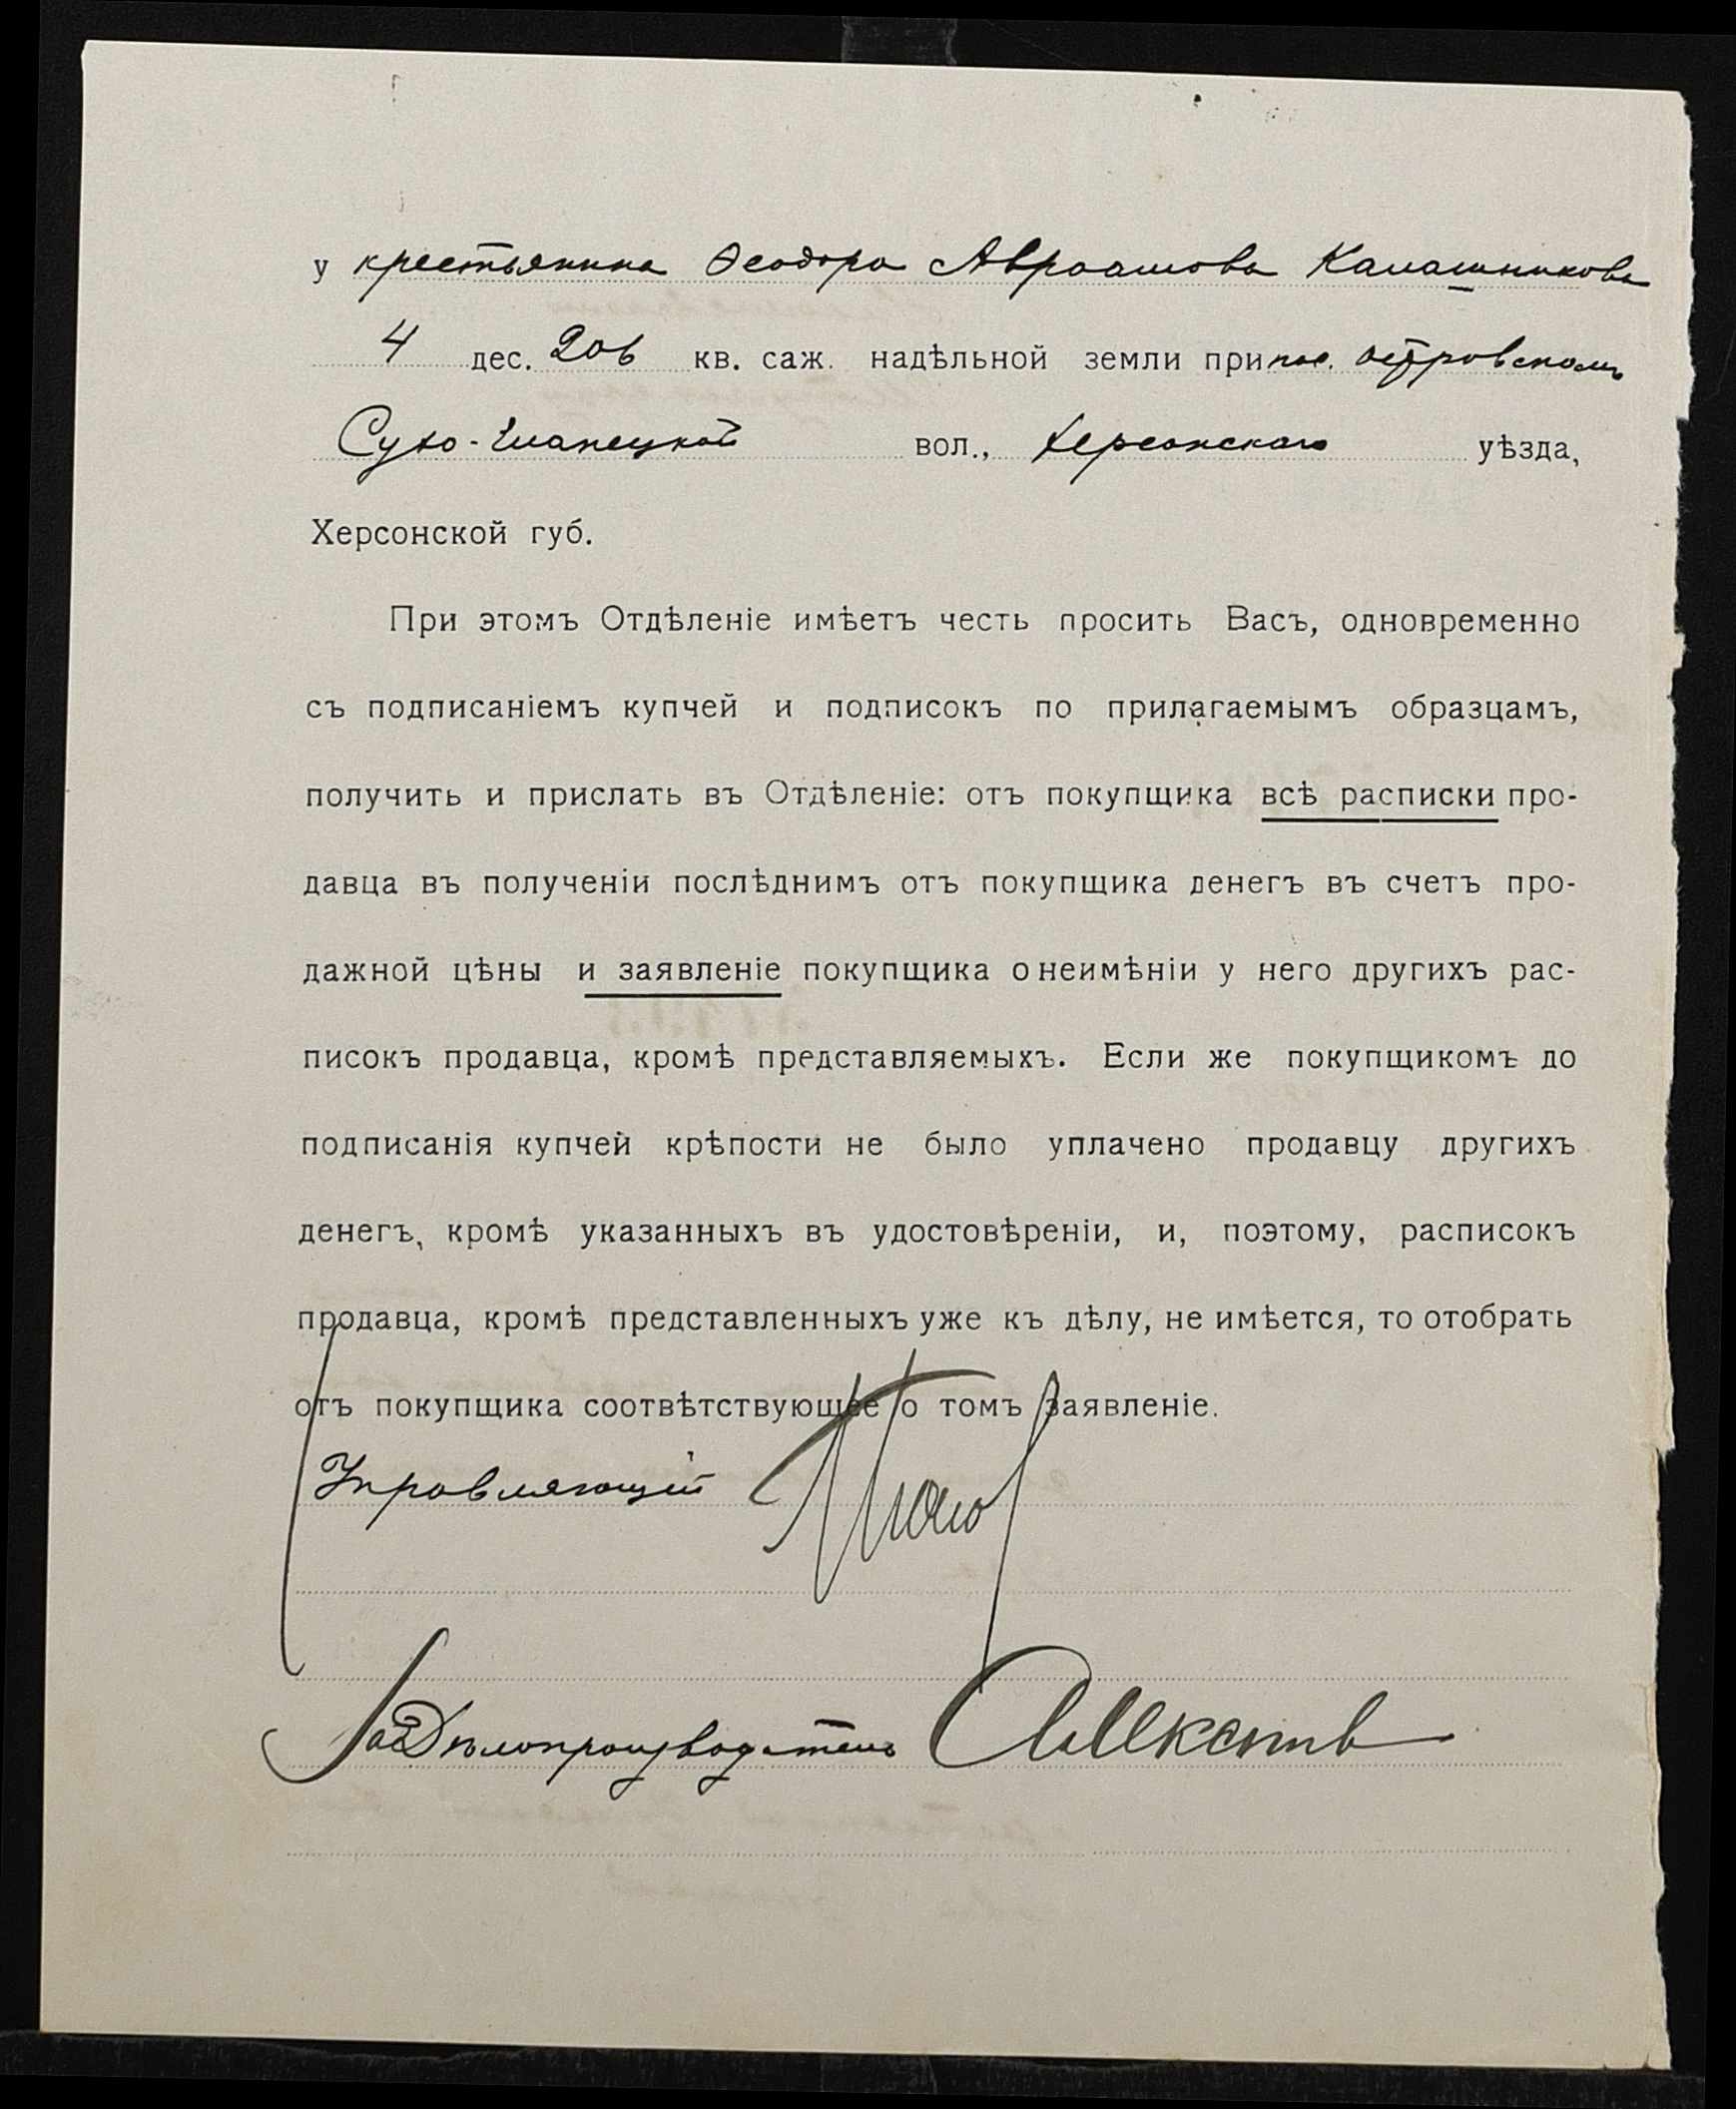 у крестьянина Ѳеодора Авраамова Калашникова
4 дес. 206 кв. саж. надѣльной земли при пос. Островскомъ
Сухо-Еланецкой вол., Херсонскаго уѣзда,
Херсонской губ.
При этомъ Отдѣленіе имѣетъ честь просить Васъ, одновременно
съ подписаніемъ купчей и подписокъ по прилагаемымъ образцамъ,
получить и прислать въ Отдѣленіе: отъ покупщика всѣ расписки про-
давца въ полученіи послѣднимъ отъ покупщика денегъ въ счетъ про-
дажной цѣны и заявленіе покупщика о неимѣніи у него другихъ рас-
писокъ продавца, кромѣ представляемыхъ. Если же покупщикомъ до
подписанія купчей крѣпости не было уплачено продавцу другихъ
денегъ, кромѣ указанныхъ въ удостовѣреніи, и, поэтому, расписокъ
продавца, кромѣ представленныхъ уже къ дѣлу, не имѣется, то отобрать
отъ покупщика соотвѣтствующее о томъ заявленіе.
Управляющій
За Дѣлопроизводитель